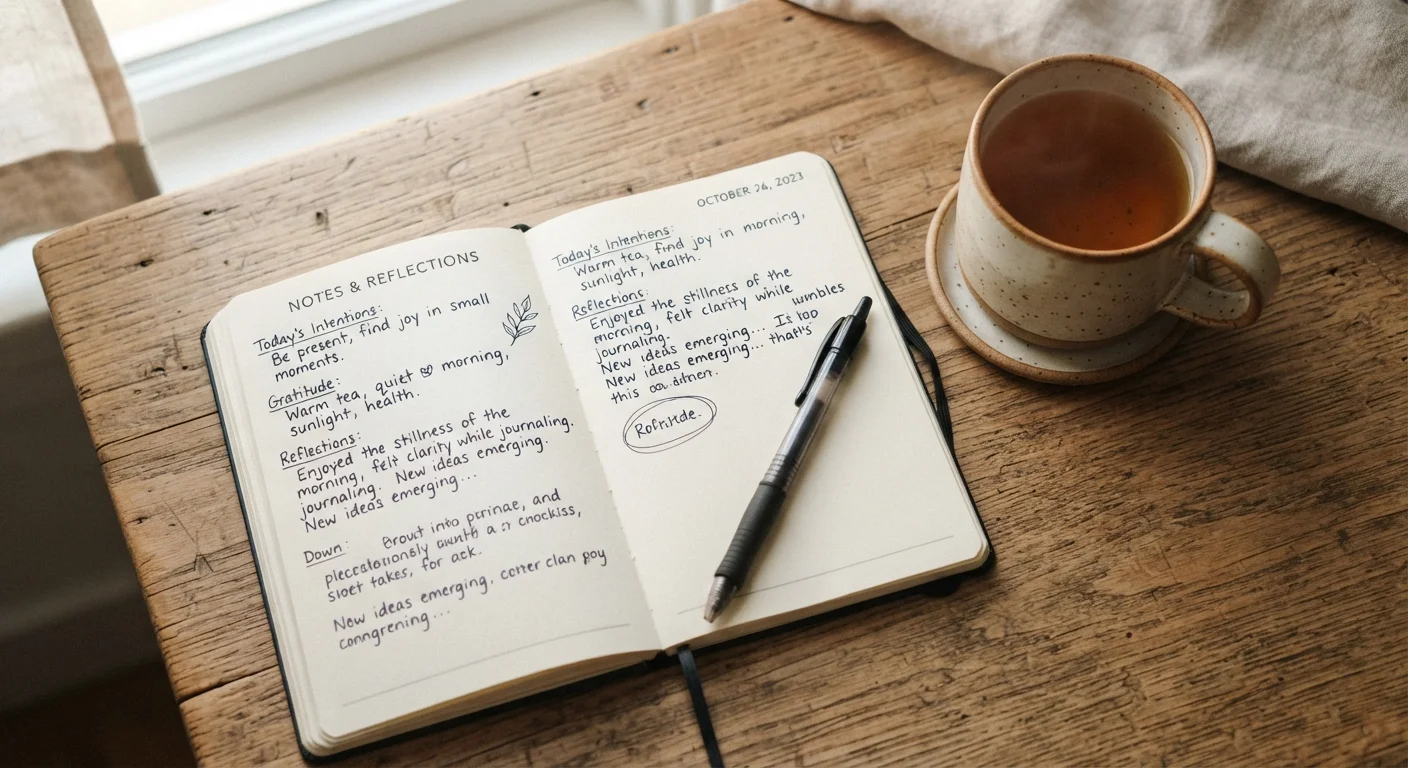 NOTES & REFLECTIONS
Today's Intentions:
Be present, find joy in small
moments.
Gratitude:
Warm tea, quiet morning,
sunlight, health.
Reflections:
Enjoyed the stillness of the
morning, felt clarity while journaling.
journaling. New ideas emerging.
New ideas emerging...
Down:
into and
a
takes, for
New ideas emerging, clan
OCTOBER 2023
Today's Intentions:
Warm tea, find joy in morning,
sunlight, health.
Reflections:
Enjoyed the stillness of the
morning, felt clarity while
journaling.
New ideas emerging... Is too
New ideas emerging... that's
this